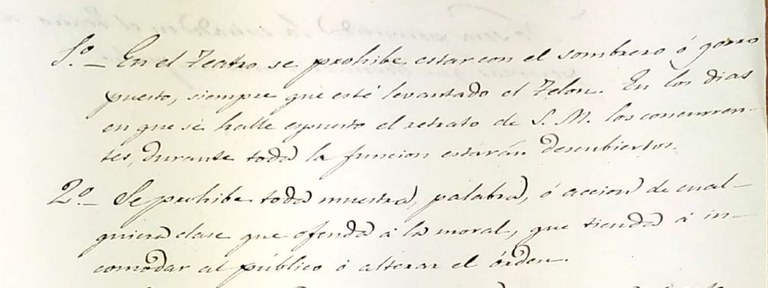 1.º — En el Teatro se prohibe estar con el sombrero ó gorro
puesto, siempre que esté levantado el Telon. En los dias
en que se halle espuesto el retrato de S. M. los concurren-
tes, durante toda la funcion estarán descubiertos.
2.º — Se prohibe toda muestra, palabra, ó accion de cual-
quiera clase que ofenda á la moral, que tienda á in-
comodar al público ó alterar el órden.